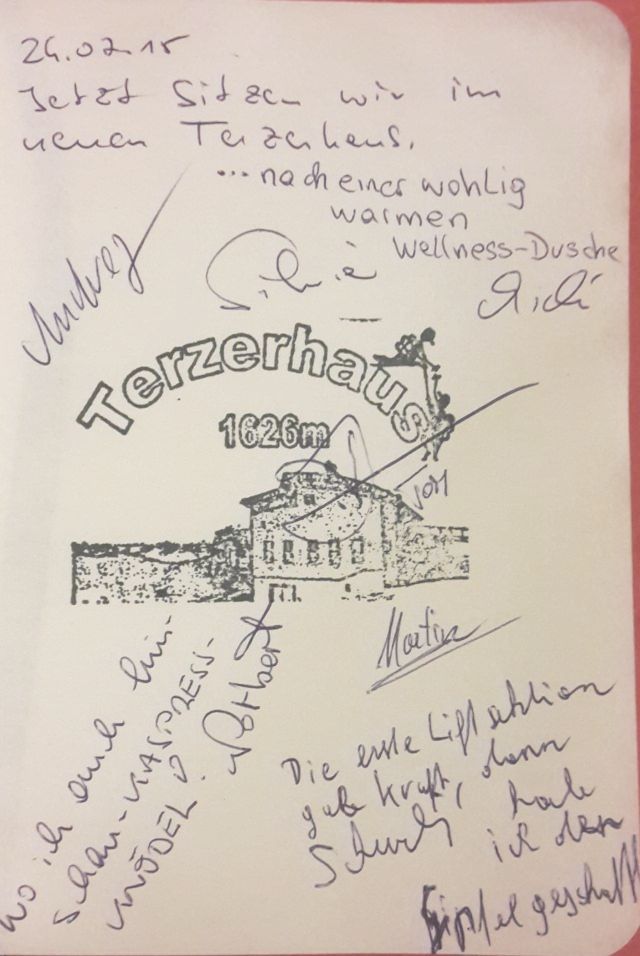 24.02.15
Jetzt Sitzen wir im
neuen Terzerhaus.
...nach einer wohlig
warmen
Wellness-Dusche
Silvia
Terzerhaus
1626m
Martin
Wo ich auch hin-
schau - KASPRESS-
KNÖDEL!
Norbert
Die erste Liftaktion
gab Kraft, dann
Schwups habe
ich den
Gipfel geschafft